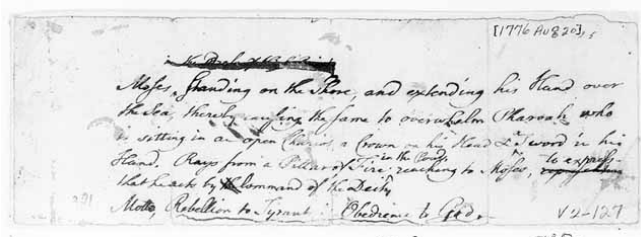 [1776 Aug 20]
Moses standing on the Shore, and extending his Hand over
the Sea, thereby causing the same to overwhelm Pharoah who
is sitting in an open Chariot, a Crown on his Head & a Sword in his
Hand. Rays from a Pillar of Fire in the Clouds reaching to Moses, to express
that he acts by Command of the Deity
Motto, Rebellion to Tyrants is Obedience to God.
V2-127